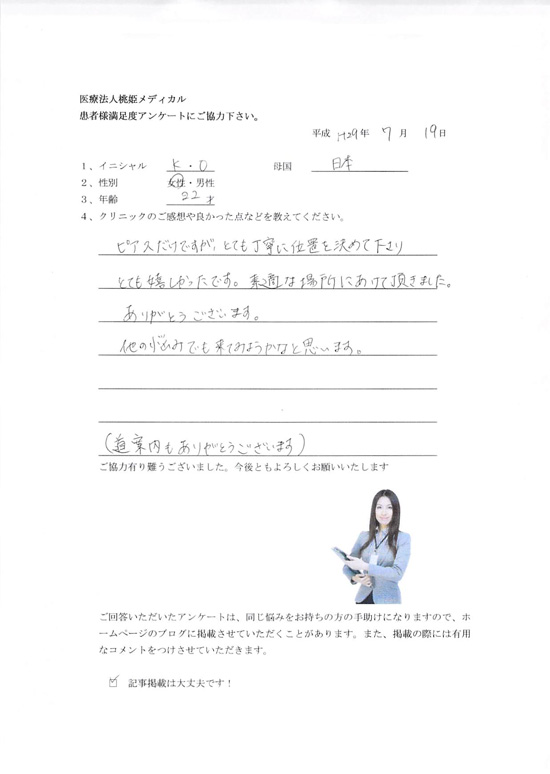 医療法人桃姫メディカル
患者様満足度アンケートにご協力下さい。
平成 H29年 7月 19日
1、イニシャル K・O 母国 日本
2、性別 女性・男性
3、年齢 22才
4、クリニックのご感想や良かった点などを教えてください。
ピアスだけですが、とても丁寧に位置を決めて下さり
とても嬉しかったです。素適な場所にあけて頂きました。
ありがとうございます。
他の悩みでも来てみようかなと思います。
(道案内もありがとうございます)
ご協力有り難うございました。今後ともよろしくお願いいたします
ご回答いただいたアンケートは、同じ悩みをお持ちの方の手助けになりますので、ホ
ームページのブログに掲載させていただくことがあります。また、掲載の際には有用
なコメントをつけさせていただきます。
記事掲載は大丈夫です！